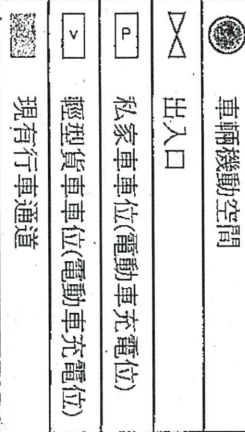 車輛機動空間
出入口
P 私家車車位(電動車充電位)
V 輕型貨車車位(電動車充電位)
現有行車通道